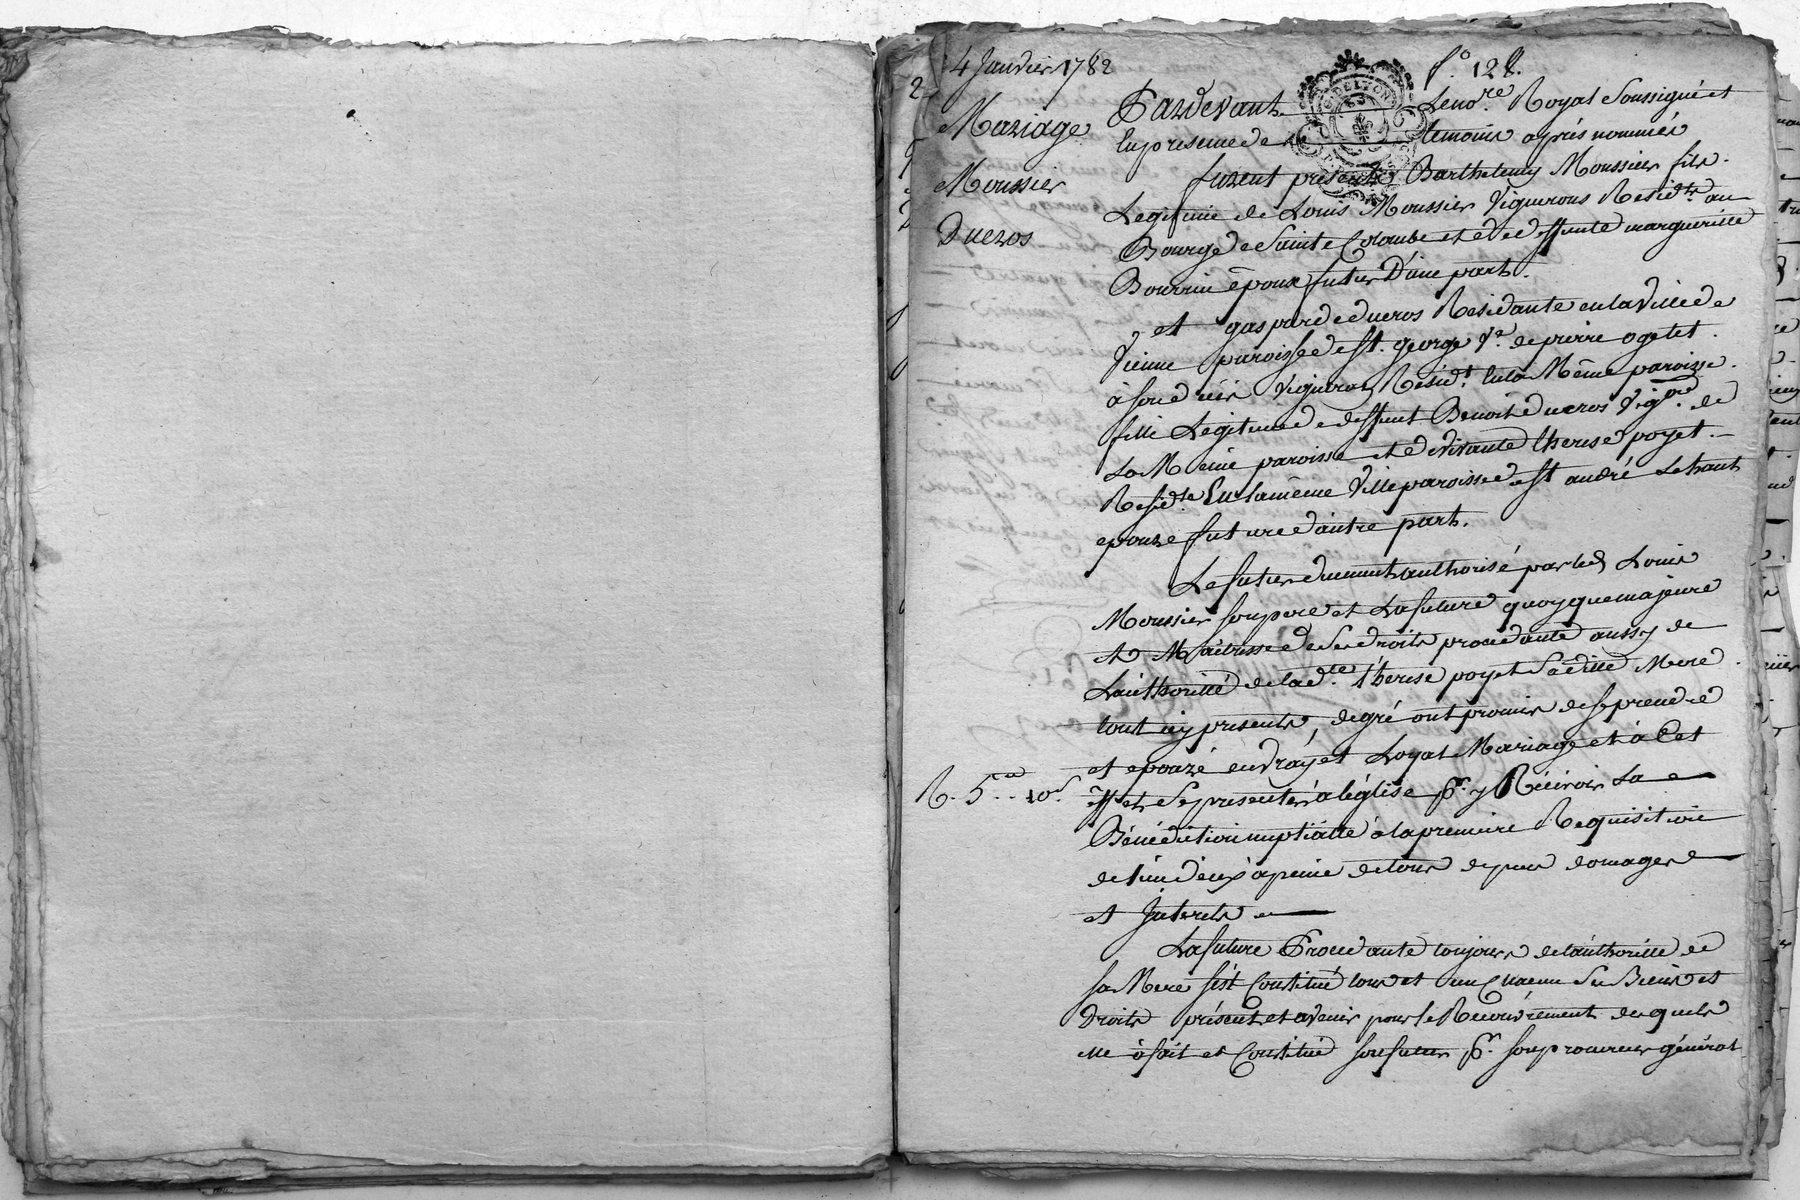 4 Janvier 1782
f.o 128.
Mariage
Moussier
Ducros
G. DE LYON
Pardevant Le no.re Royal Soussigné et
En presence de temoins après nommés
furent presents Barthelemy Moussier fils
Legitime de Louis Moussier Vigneron Resid.t au
Bourg de Sainte Colombe et de deffunte margueritte
Bourrin époux futur D'une part.
et gasparde ducros Residante en la Ville de
Vienne paroisse de St. george V.e de pierre oget et
à son decès Vigneron Resid.t en la Même paroisse
fille Legitime de deffunt Benoit ducros Vig.on de
La Même paroisse et de vivante therese poyet
Resid.te En la même Ville paroisse de st andré Le haut
epouse future d'autre part.
Le futur duement authorisé par led Louis
Moussier son pere et La future quoyque majeure
et Maitresse de ses droits procedante aussy de
L'authorité de lad.te therese poyet Sa ditte Mere
tout icy presents, de gré ont promis de se prendre
et epouzé en vray et Loyal Mariage et à Cet
R. 5.tt 10.s
effet se presenter à l'église p.r y Recevoir La
Bénédiction nuptialle à la premiere Requisition
de l'un d'eux à peine de tous depens domages
et Interets
La future Procedante toujours de l'authorité de
sa Mere s'est Constitué tous et un Chacun Ses Biens et
Droits présents et avenir pour le Recouvrement desquels
elle à fait et Constitué son futur p.r son procureur général